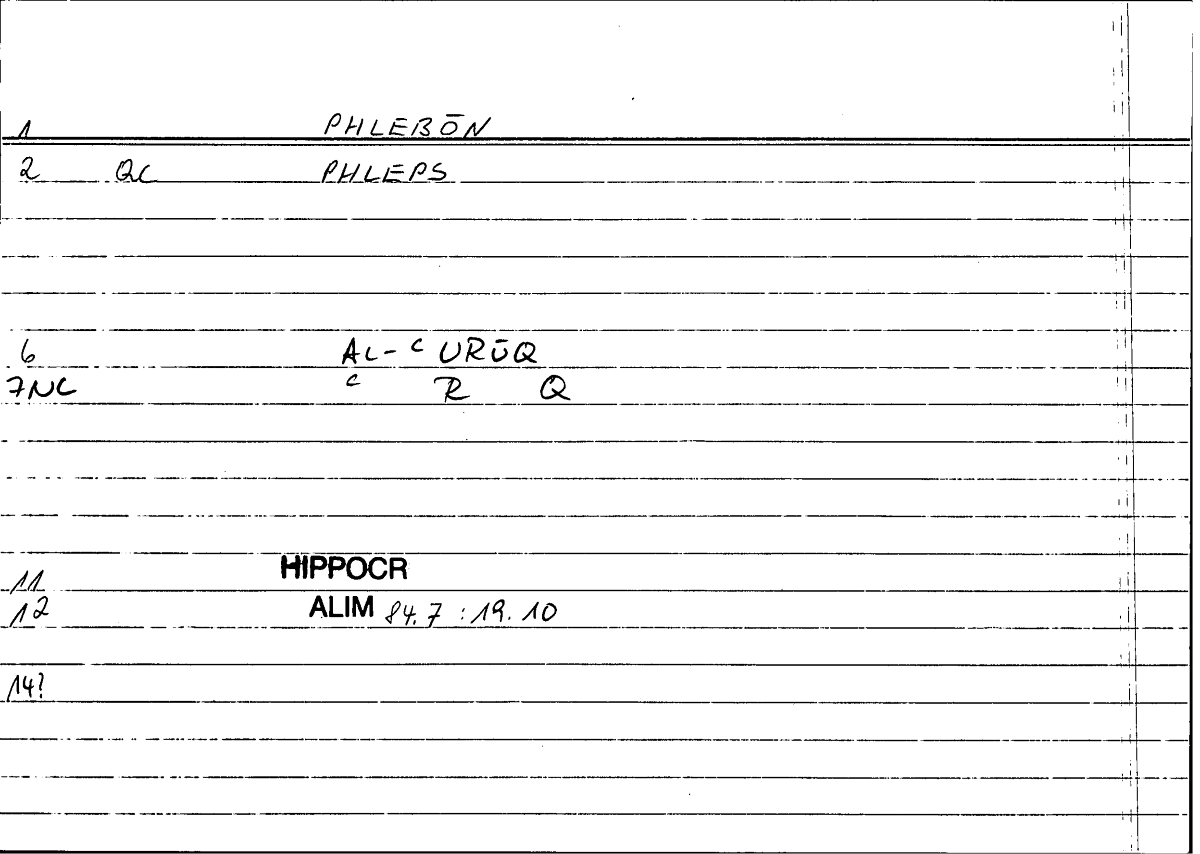 1 PHLEBŌN
2 QC PHLEPS
6 AL-ᶜURŪQ
7NC ᶜ R Q
11 HIPPOCR
12 ALIM 84.7 : 19.10
14?